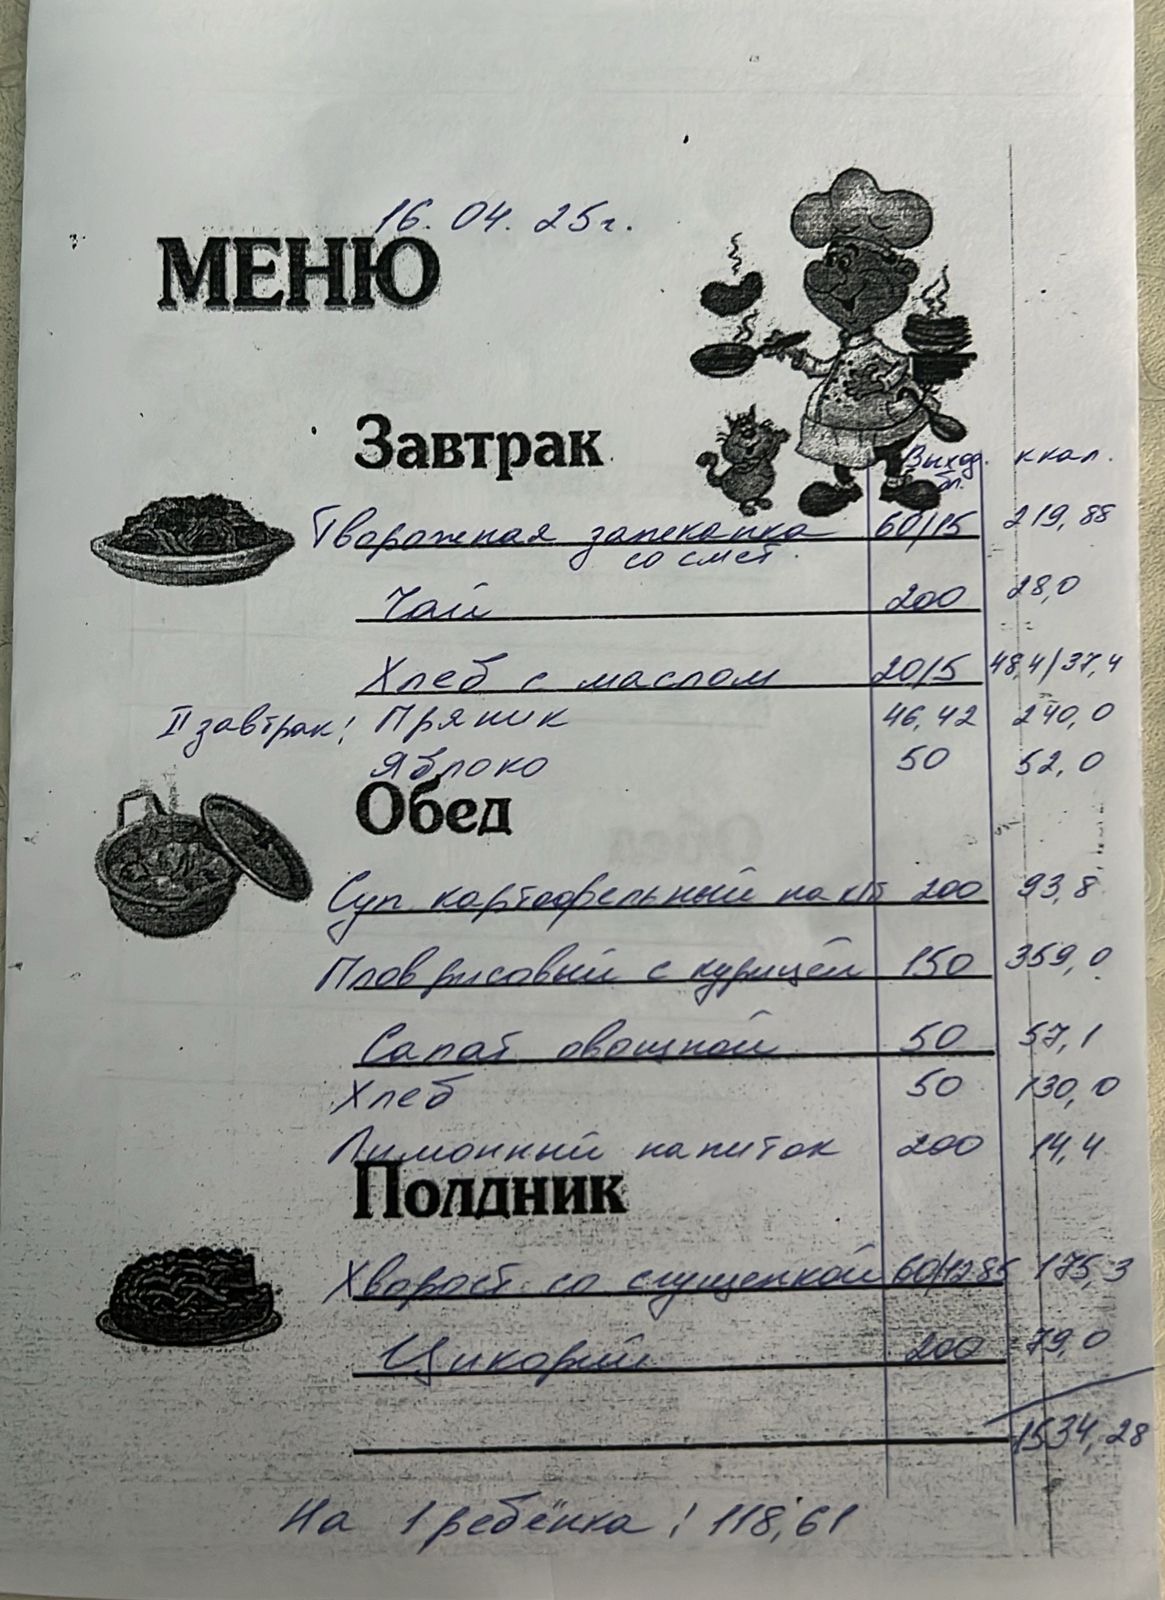 16.04.25г.
МЕНЮ
Завтрак
Выход ккал.
бл.
Творожная запеканка 60/15 219,88
со смет.
Чай 200 28,0
Хлеб с маслом 20/5 48,4/37,4
II завтрак: Пряник 46,42 240,0
Яблоко 50 52,0
Обед
Суп картофельный на к/б 200 93,8
Плов рисовый с курицей 150 359,0
Салат овощной 50 57,1
Хлеб 50 130,0
Лимонный напиток 200 14,4
Полдник
Хворост со сгущенкой 60/12,85 175,3
Цикорий 200 79,0
1534,28
На 1 ребёнка: 118,61